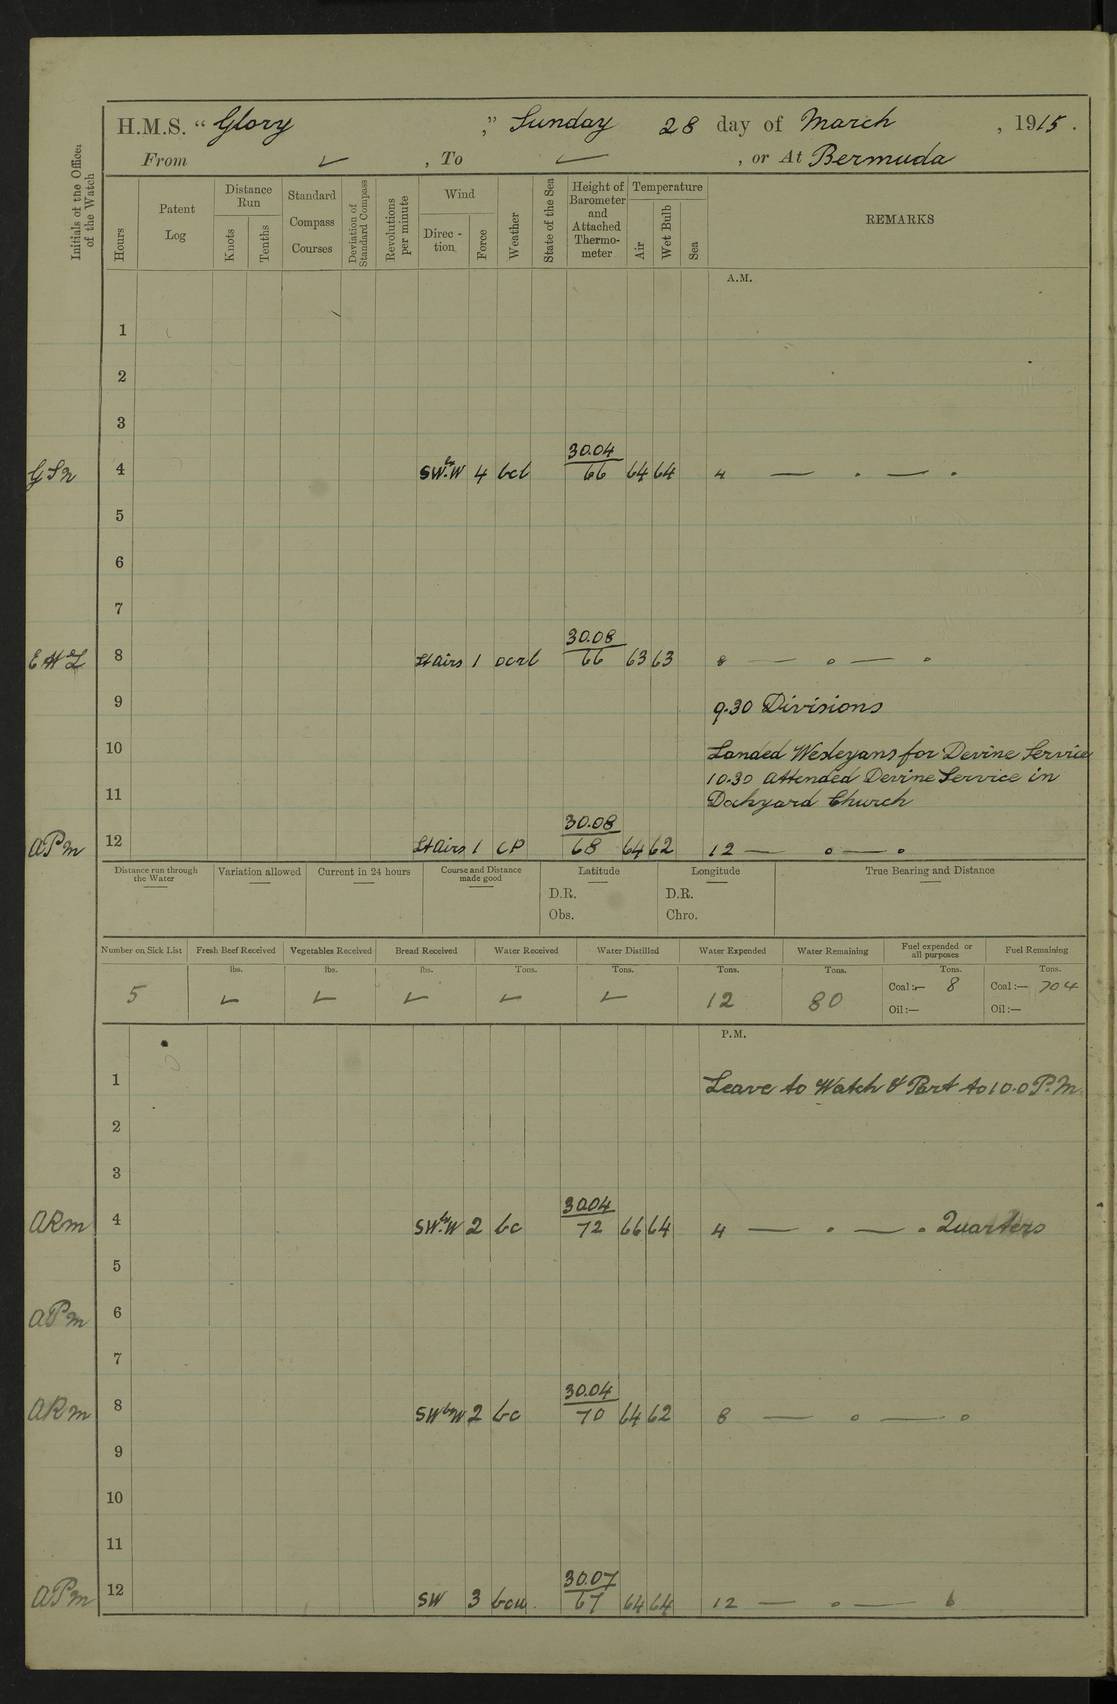 H.M.S. “ Glory ,” Sunday 28 day of March , 1915 .
From ✓ , To ✓ , or At Bermuda
Initials of the Officer of the Watch
Hours
Patent Log
Distance Run
Knots
Tenths
Standard Compass Courses
Deviation of Standard Compass
Revolutions per minute
Wind
Direc-tion
Force
Weather
State of the Sea
Height of Barometer and Attached Thermo-meter
Temperature
Air
Wet Bulb
Sea
REMARKS
A.M.
1
2
3
30.04
4 SW.byW 4 66 64 64 4 — . — .
5
6
7
30.08
8 Lt Airs 1 66 63 63 8 — o — o
9 9.30 Divisions
10 Landed Wesleyans for Devine Service
10.30 Attended Devine Service in
11 Dockyard Church
30.08
APM 12 Lt Airs 1 CP 68 64 62 12 — o — o
Distance run through the Water
Variation allowed
Current in 24 hours
Course and Distance made good
Latitude
D.R.
Obs.
Longitude
D.R.
Chro.
True Bearing and Distance
Number on Sick List
5
Fresh Beef Received
lbs.
✓
Vegetables Received
lbs.
✓
Bread Received
lbs.
✓
Water Received
Tons.
✓
Water Distilled
Tons.
✓
Water Expended
Tons.
12
Water Remaining
Tons.
80
Fuel expended or all purposes
Tons.
Coal:— 8
Oil:—
Fuel Remaining
Tons.
Coal:— 704
Oil:—
P.M.
1 Leave to Watch & Part to 10.0 P.M.
2
3
30.04
ARM 4 SW.byW 2 bc 72 66 64 4 — . — . Quarters
5
APM 6
7
30.04
ARM 8 SWbyW 2 bc 70 64 62 8 — o — o
9
10
11
30.07
APM 12 SW 3 bcu 67 64 64 12 — o —